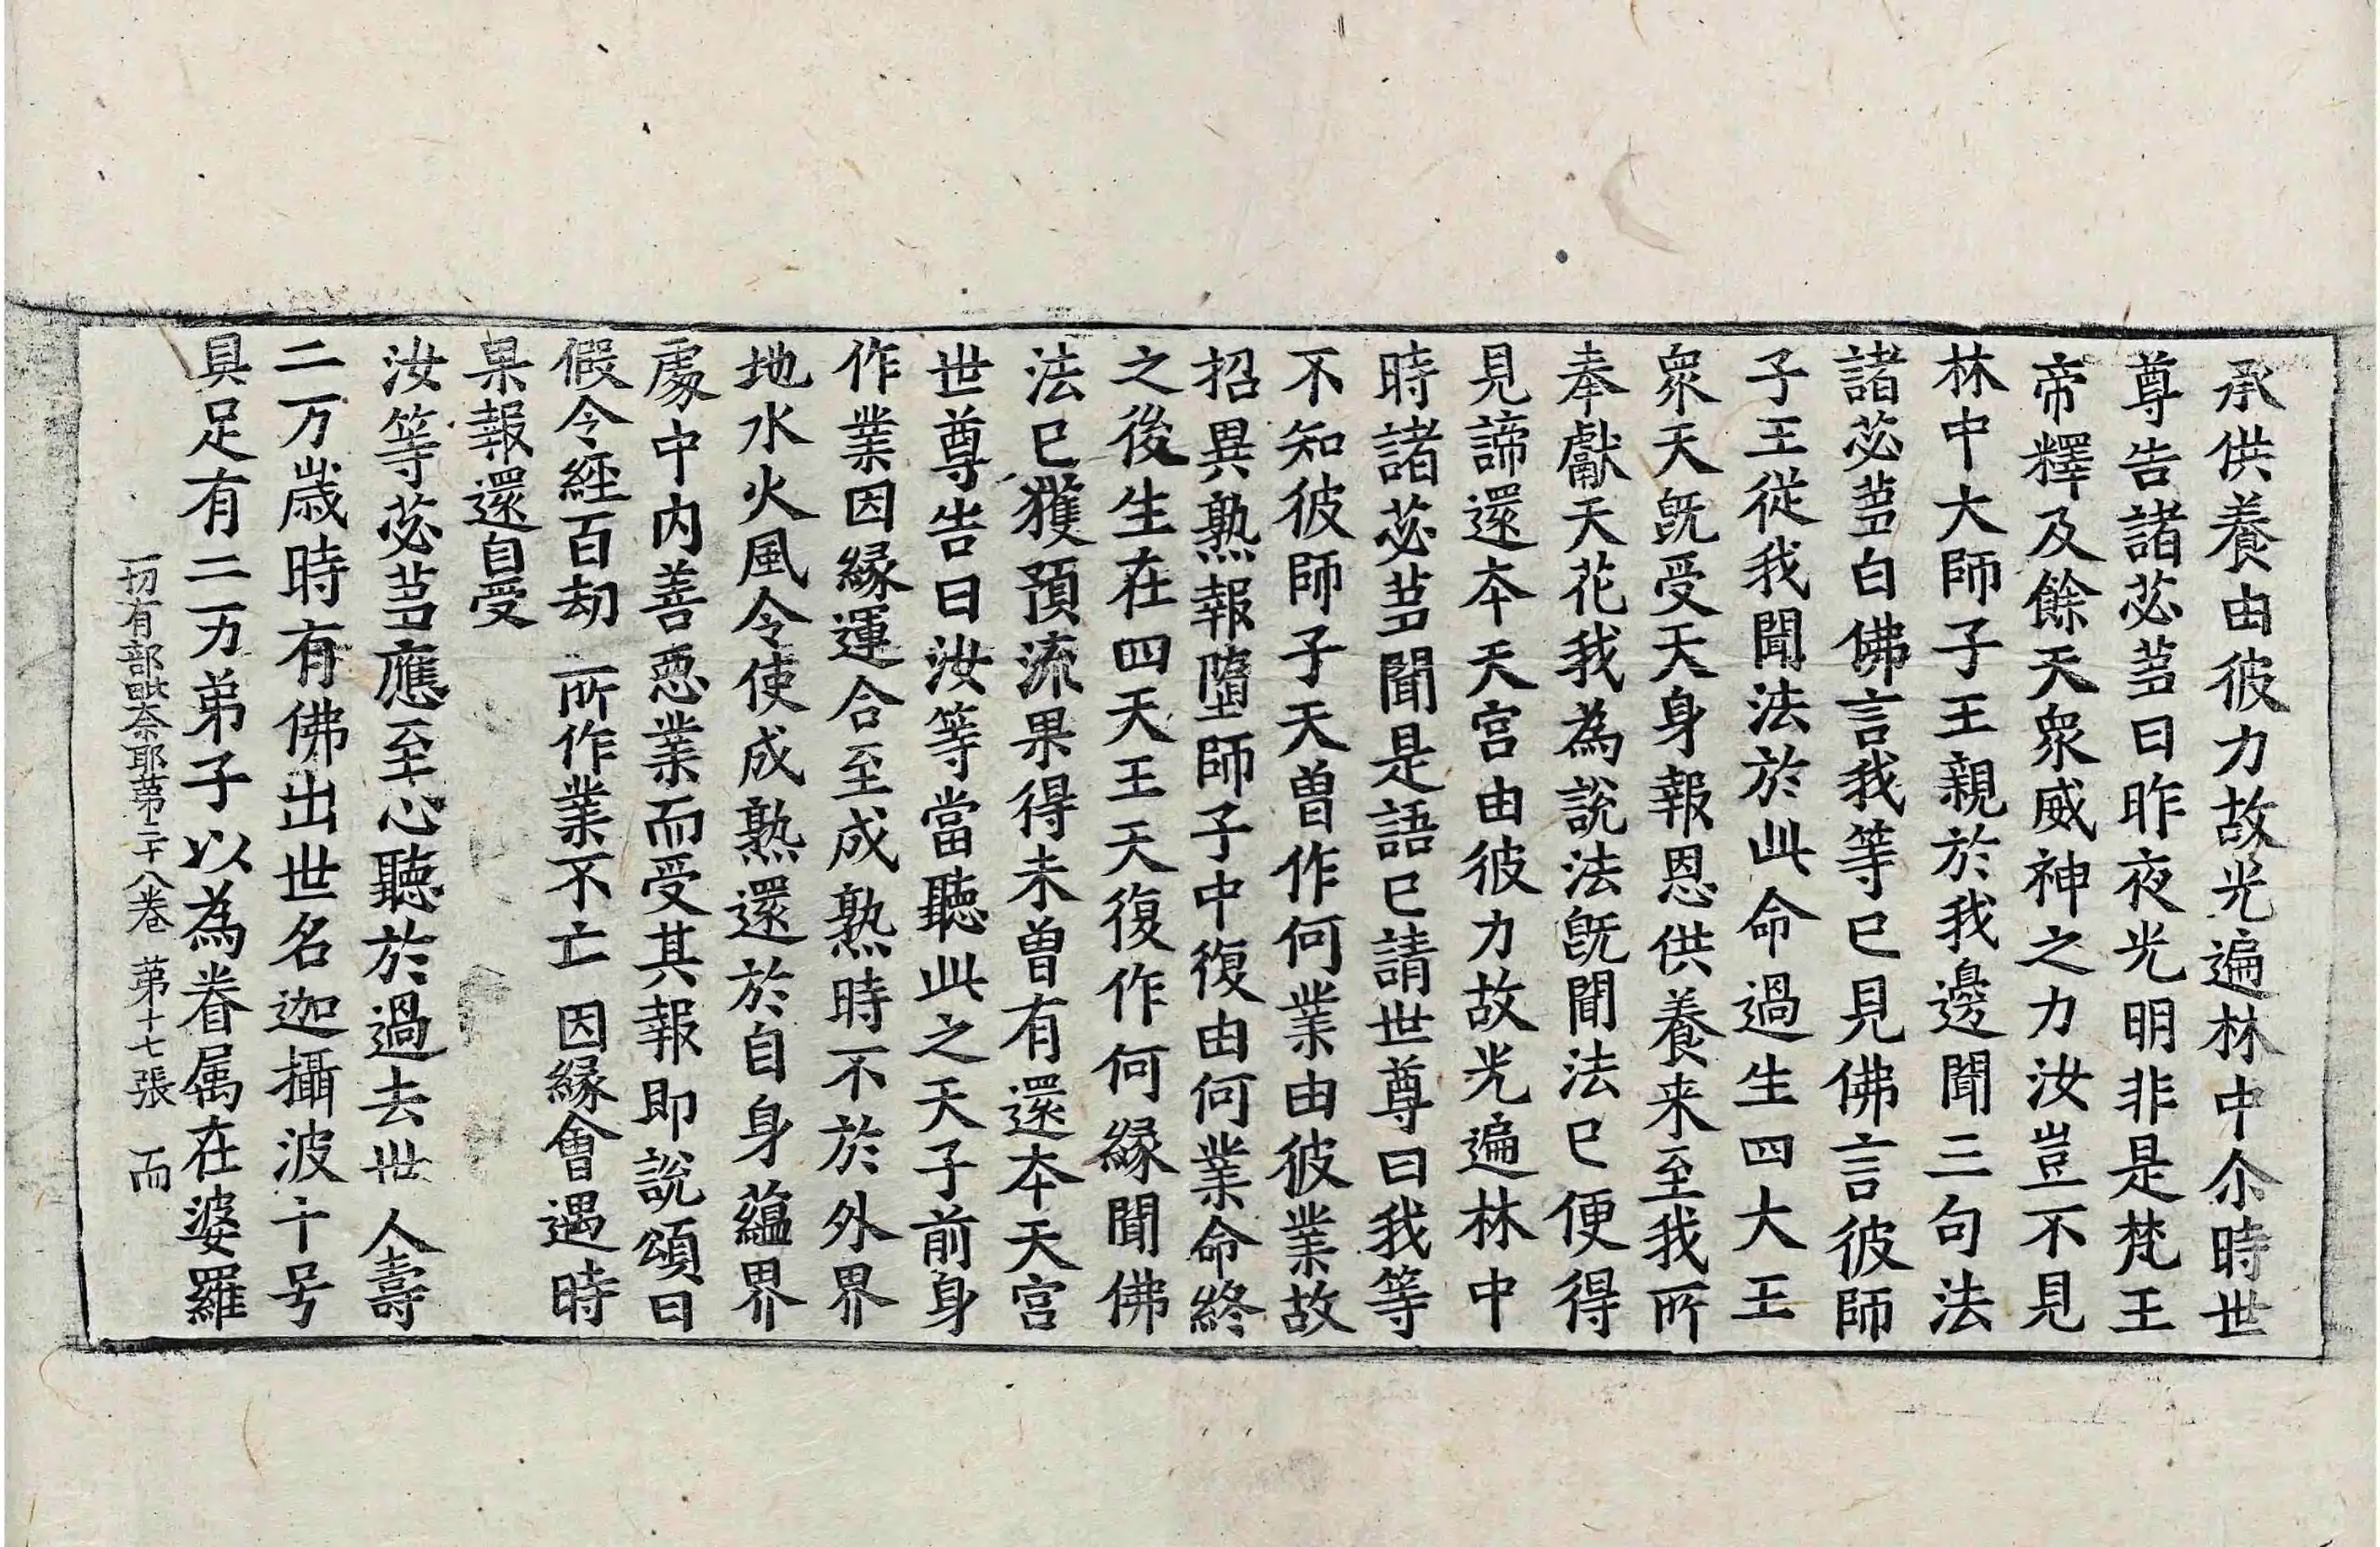 承供養由彼力故光遍林中尒時世
尊告諸苾蒭曰昨夜光明非是梵王
帝釋及餘天衆威神之力汝豈不見
林中大師子王親於我邊聞三句法
諸苾蒭白佛言我等已見佛言彼師
子王從我聞法於此命過生四大王
衆天旣受天身報恩供養来至我所
奉獻天花我為說法旣聞法已便得
見諦還本天宮由彼力故光遍林中
時諸苾蒭聞是語已請世尊曰我等
不知彼師子天曽作何業由彼業故
招異熟報墮師子中復由何業命終
之後生在四天王天復作何縁聞佛
法已獲預流果得未曽有還本天宮
世尊告曰汝等當聽此之天子前身
作業因縁運合至成熟時不於外界
地水火風令使成熟還於自身蘊界
處中内善惡業而受其報即說頌曰
假令經百劫 所作業不亡 因縁會遇時
果報還自受
汝等苾蒭應至心聽於過去世人壽
二万歳時有佛出世名迦攝波十号
具足有二万弟子以為眷属在婆羅
一切有部毗奈耶第三十八卷 第十七張 而